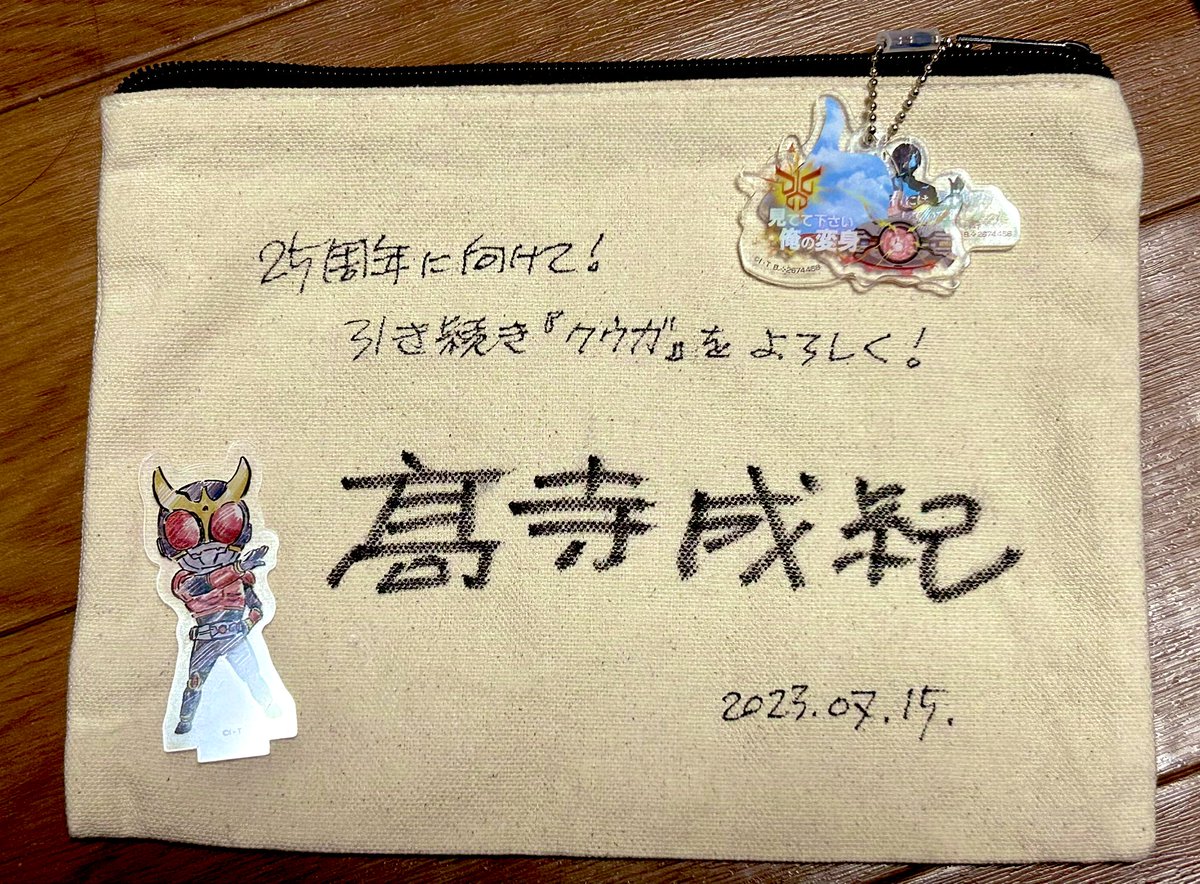 25周年に向けて!
引き続き『クウガ』をよろしく!
髙寺成紀
2023.07.15.
見てて下さい
俺の変身
©I・T